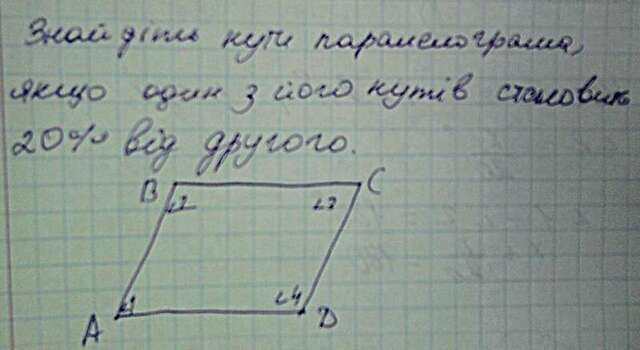 Знайдіть кути паралелограма,
якщо один з його кутів становить
20% від другого.
B C
∠2 ∠3
∠1 ∠4
A D